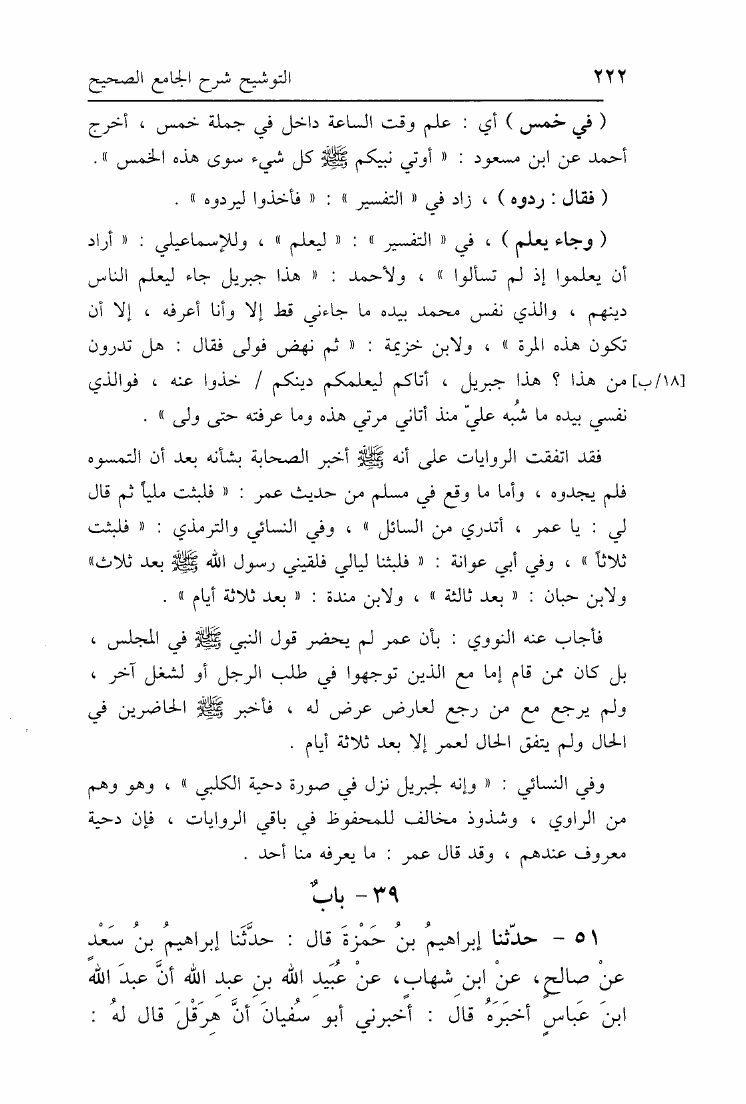 ٢٢٢ التوشيح شرح الجامع الصحيح
( في خمس ) أي : علم وقت الساعة داخل في جملة خمس ، أخرج
أحمد عن ابن مسعود : « أوتي نبيكم ﷺ كل شيء سوى هذه الخمس ».
( فقال : ردوه ) ، زاد في « التفسير » : « فأخذوا ليردوه » .
( وجاء يعلم ) ، في « التفسير » : « ليعلم » ، وللإسماعيلي : « أراد
أن يعلموا إذ لم تسألوا » ، ولأحمد : « هذا جبريل جاء ليعلم الناس
دينهم ، والذي نفس محمد بيده ما جاءني قط إلا وأنا أعرفه ، إلا أن
تكون هذه المرة » ، ولابن خزيمة : « ثم نهض فولى فقال : هل تدرون
[١٨/ب] من هذا ؟ هذا جبريل ، أتاكم ليعلمكم دينكم / خذوا عنه ، فوالذي
نفسي بيده ما شُبه عليّ منذ أتاني مرتي هذه وما عرفته حتى ولى » .
فقد اتفقت الروايات على أنه ﷺ أخبر الصحابة بشأنه بعد أن التمسوه
فلم يجدوه ، وأما ما وقع في مسلم من حديث عمر : « فلبثت ملياً ثم قال
لي : يا عمر ، أتدري من السائل » ، وفي النسائي والترمذي : « فلبثت
ثلاثاً » ، وفي أبي عوانة : « فلبثنا ليالي فلقيني رسول الله ﷺ بعد ثلاث»
ولابن حبان : « بعد ثالثة » ، ولابن مندة : « بعد ثلاثة أيام » .
فأجاب عنه النووي : بأن عمر لم يحضر قول النبي ﷺ في المجلس ،
بل كان ممن قام إما مع الذين توجهوا في طلب الرجل أو لشغل آخر ،
ولم يرجع مع من رجع لعارض عرض له ، فأخبر ﷺ الحاضرين في
الحال ولم يتفق الحال لعمر إلا بعد ثلاثة أيام .
وفي النسائي : « وإنه لجبريل نزل في صورة دحية الكلبي » ، وهو وهم
من الراوي ، وشذوذ مخالف للمحفوظ في باقي الروايات ، فإن دحية
معروف عندهم ، وقد قال عمر : ما يعرفه منا أحد .
٣٩ - بابٌ
٥١ - حدّثنا إبراهيمُ بنُ حَمْزةَ قال : حدَّثَنا إبراهيمُ بنُ سَعْدٍ
عنْ صالحٍ، عنْ ابنِ شهابٍ، عنْ عُبَيدِ الله بنِ عبدِ الله أنَّ عبدَ الله
ابنَ عَباسٍ أخبَرَهُ قال : أخبرني أبو سُفيانَ أنَّ هِرَقْلَ قال لهُ :